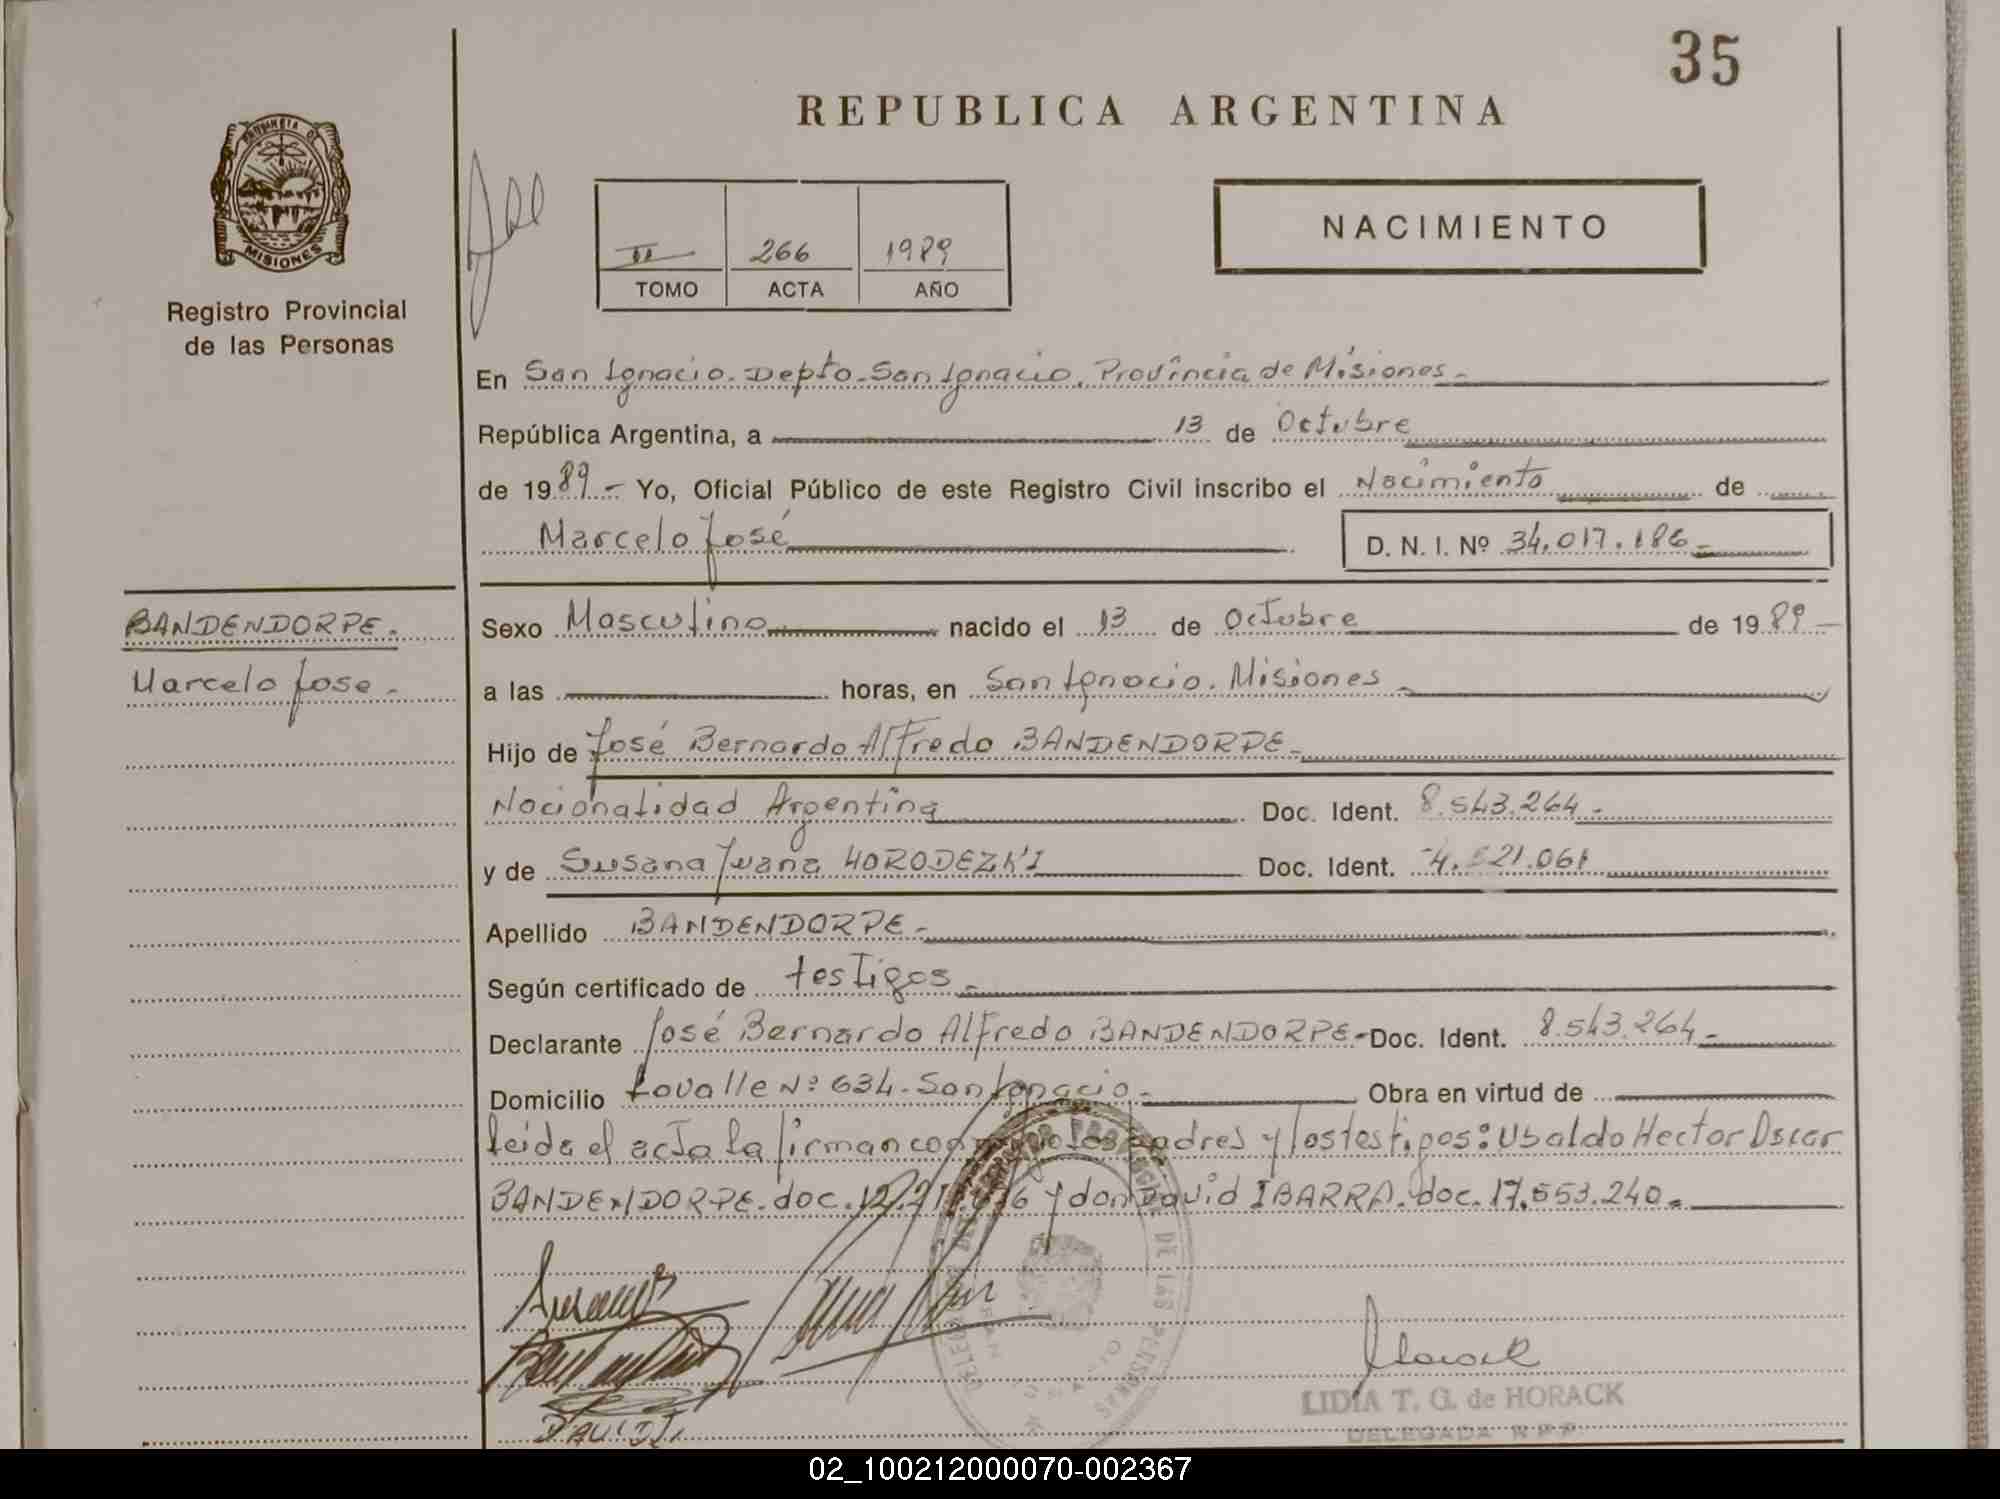 35
REPUBLICA ARGENTINA
PROVINCIA DE
MISIONES
Registro Provincial
de las Personas
II 266 1989
TOMO ACTA AÑO
NACIMIENTO
En San Ignacio. Depto. San Ignacio. Provincia de Misiones.-
República Argentina, a 13 de Octubre
de 1989.- Yo, Oficial Público de este Registro Civil inscribo el Nacimiento de
Marcelo José
D. N. I. Nº 34.017.186.-
BANDENDORPE.
Marcelo Jose.-
Sexo Masculino nacido el 13 de Octubre de 1989-
a las horas, en San Ignacio. Misiones.-
Hijo de José Bernardo Alfredo BANDENDORPE.-
Nacionalidad Argentina Doc. Ident. 8.543.264.-
y de Susana Juana HORODEZKI Doc. Ident. 061
Apellido BANDENDORPE.-
Según certificado de testigos.-
Declarante José Bernardo Alfredo BANDENDORPE-Doc. Ident. 8.543.264.-
Domicilio Lavalle Nº 634. San Ignacio.- Obra en virtud de
leida el acta la firman conmigo los padres y los testigos: Ubaldo Hector Oscar
BANDENDORPE. doc. y don David IBARRA. doc. 17.553.240.-
DE LAS PERSONAS
LIDIA T. G. de HORACK
DELEGADA R.P.P.
02_100212000070-002367